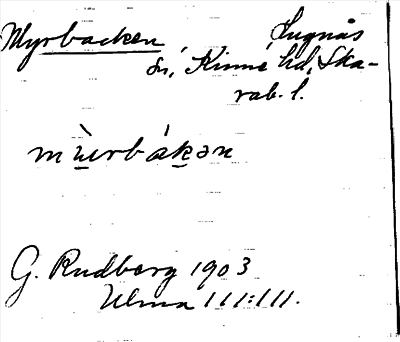 Myrbacken Lugnås
sn, Kinne hd, Ska-
rab. l.
mùu̲rbák̲ən
G. Rudberg 1903
Ulma 111:111.